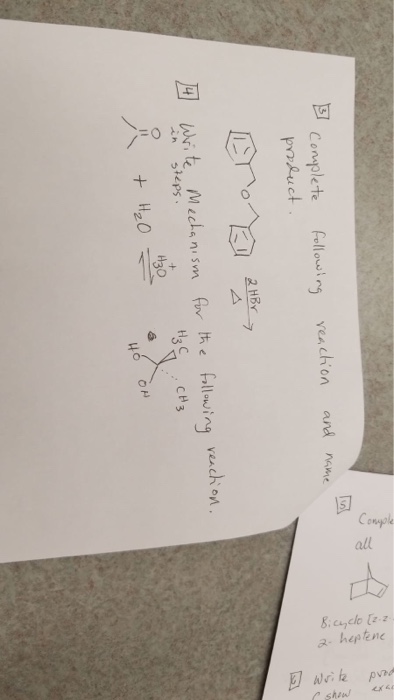 [3] Complete following reaction and name
product.
O
2HBr
Δ
[4] Write Mechanism for the following reaction.
in steps.
O
+ H2O
H3O+
H3C
CH3
HO
OH
[5] Comple
all
Bicyclo [2.2
2-heptene
Write prod
show